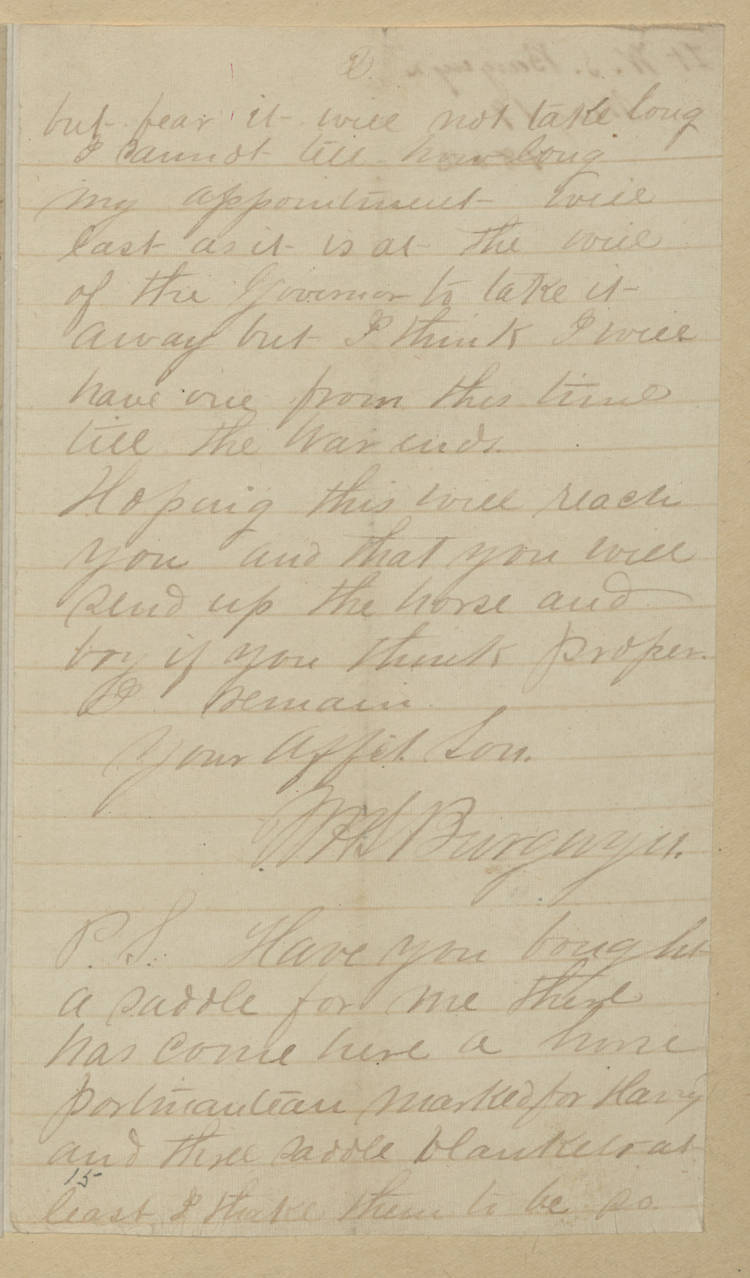 2.
but fear it will not take long
I cannot tell how long
my appointment will
last as it is at the will
of the Governor to take it
away but I think I will
have one from this time
till the War ends.
Hoping this will reach
you and that you will
send up the horse and
boy if you think proper.
I remain
Your Affct. Son.
WHS Burgwyn.
P. S. Have you bought
a saddle for me there
has come here a horse
portmanteau marked for Harry
and three saddle blankets at
15
least I think them to be so.